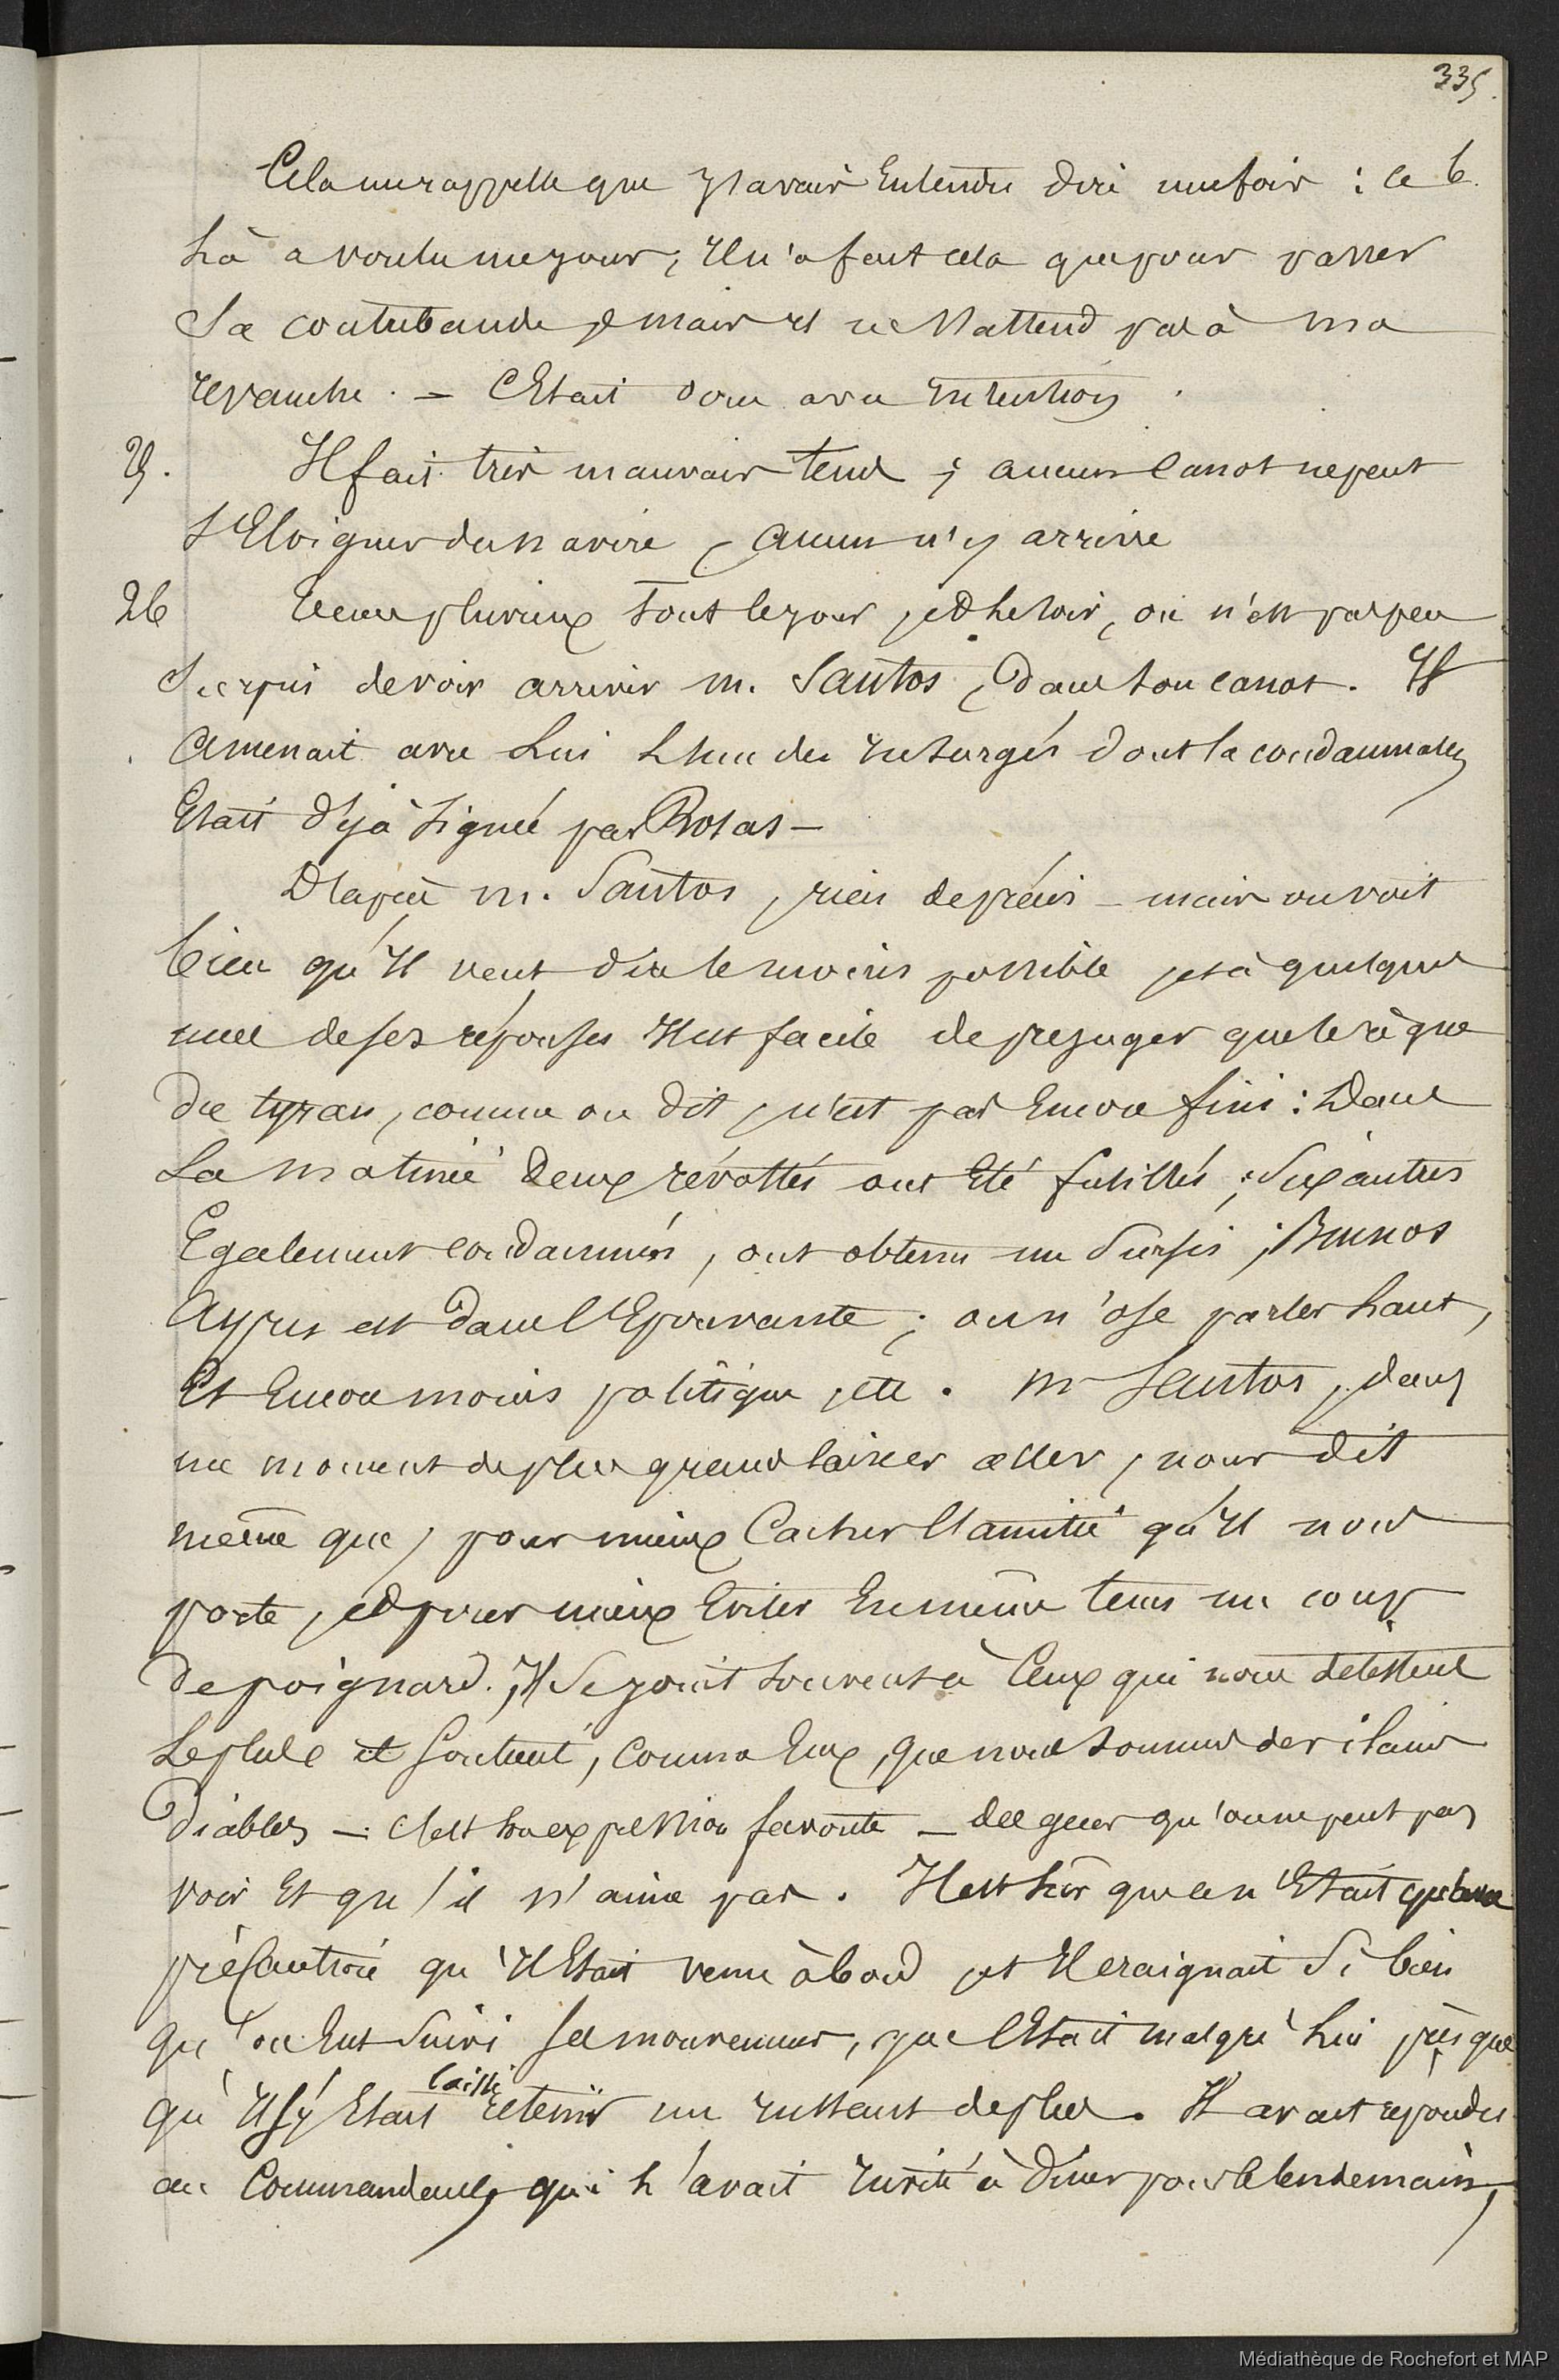 335.
Cela me rappelle que j'avais Entendu dire une fois : ce b.
là a voulu me jouer, Il n'a fait cela que pour passer
Sa contrebande, mais il ne s'attend pas à ma
revanche. – C'Etait donc avec intention.
25. Il fait très mauvais tems ; aucun canot ne peut
s'Eloigner du navire, aucun n'y arrive
26 Tems pluvieux tout le jour, et le soir, on n'est pas peu
Surpris de voir arriver m. Santos, dans son canot. Il
amenait avec lui l'un des insurgés dont la condamnation
Etait déjà signée par Rosas –
D'après m. Santos, rien de précis – mais on voit
bien qu'il veut dire le moins possible, et à quelques
unes de ses réponses Il est facile de préjuger que le règne
du tyran, comme on dit, n'est pas Encore fini : Dans
La matinée deux révoltés ont Eté fusillés ; Six autres
Egalement condamnés, ont obtenu un Sursis ; Buenos
Ayres est dans l'Epouvante ; on n'ose parler haut,
Et Encore moins politique, etc. mr Santos, dans
un moment de plus grand laisser aller, nous dit
même que, pour mieux Cacher l'amitié qu'Il nous
porte, et pour mieux Eviter En même tems un coup
de poignard, Il Se joint souvent à Ceux qui nous détestent
le plus et soutient, comme Eux, que nous sommes des
Diables – c'est son expression favorite – des gens qu'on ne peut pas
voir Et qu'il n'aime pas. Il est sûr que ce n'Etait qu'avec
précaution qu'Il Etait venu à bord, et Il craignait Si bien
qu'on Eut Suivi Ses mouvemens, que c'Etait malgré lui presque
qu'Il s'y Etait laissé retenir un instant de plus. Il avait répondu
au Commandant, qui l'avait invité à diner pour le lendemain,
Médiathèque de Rochefort et MAP